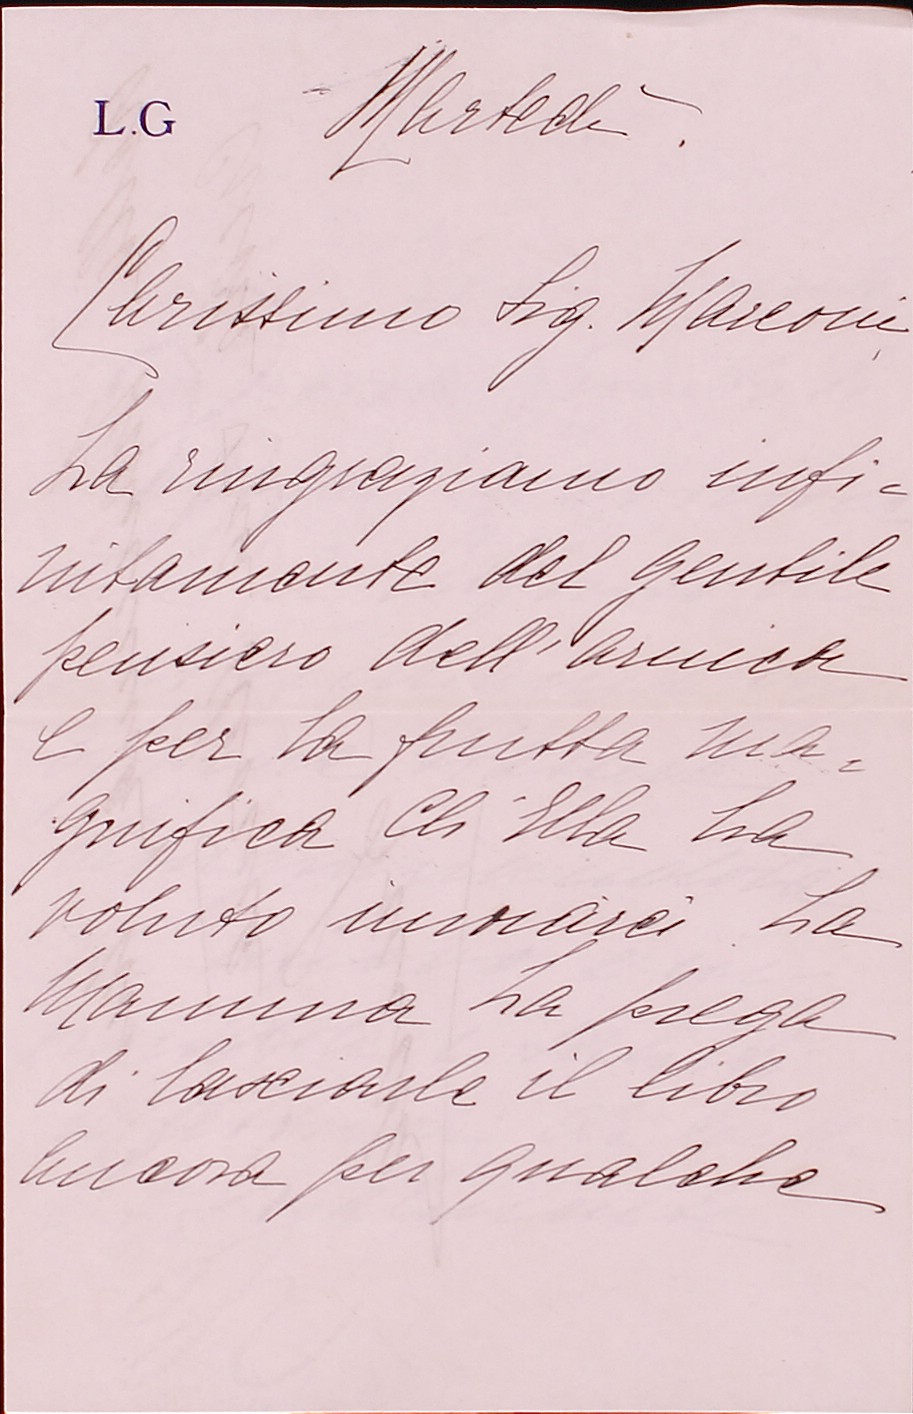 L.G
Martedì.
Carissimo Sig. Marconi,
La ringraziamo infi=
nitamente del gentile
pensiero dell'arnica
e per la frutta ma=
gnifica Ch'Ella ha
voluto inviarci. La
Mamma La prega
di lasciarle il libro
ancora per qualche